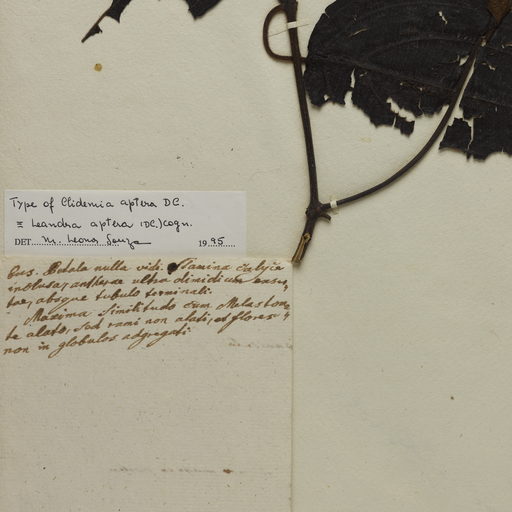 Type of Clidemia aptera DC.
≡ Leandra aptera (DC.) Cogn.
DET. M. Leonor Souza 1995
Petala nulla vidi. Stamina calyce
inclusa, antherae ultra dimidium
absque tubulo terminali.
Maxima similitudo cum Melastom
te alato, sed rami non alati, et flores
non in globulos adgregati